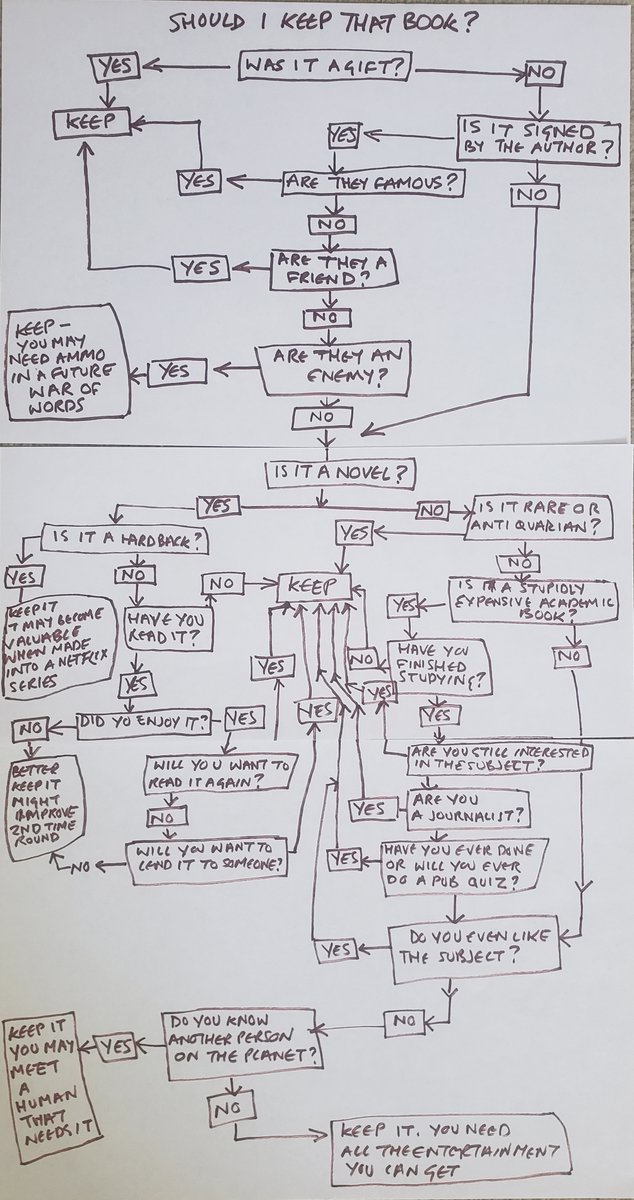 SHOULD I KEEP THAT BOOK?
YES
WAS IT A GIFT?
NO
KEEP
YES
IS IT SIGNED
BY THE AUTHOR?
YES
ARE THEY FAMOUS?
NO
NO
YES
ARE THEY A
FRIEND?
NO
KEEP –
YOU MAY
NEED AMMO
IN A FUTURE
WAR OF
WORDS
YES
ARE THEY AN
ENEMY?
NO
IS IT A NOVEL?
YES
NO
IS IT RARE OR
ANTIQUARIAN?
IS IT A HARDBACK?
YES
NO
YES
NO
NO
KEEP
IS IT A STUPIDLY
EXPENSIVE ACADEMIC
BOOK?
KEEP IT
IT MAY BECOME
VALUABLE
WHEN MADE
INTO A NETFLIX
SERIES
HAVE YOU
READ IT?
YES
NO
HAVE YOU
FINISHED
STUDYING?
NO
YES
YES
YES
YES
YES
NO
DID YO ENJOY IT?
YES
BETTER
KEEP IT
MIGHT
IMPROVE
2ND TIME
ROUND
WILL YOU WANT TO
READ IT AGAIN?
ARE YOU STILL INTERESTED
IN THE SUBJECT?
NO
YES
ARE YOU
A JOURNALIST?
NO
WILL YOU WANT TO
LEND IT TO SOMEONE?
YES
HAVE YOU EVER DONE
OR WILL YOU EVER
DO A PUB QUIZ?
YES
DO YOU EVEN LIKE
THE SUBJECT?
KEEP IT
YOU MAY
MEET
A
HUMAN
THAT
NEEDS IT
YES
DO YOU KNOW
ANOTHER PERSON
ON THE PLANET?
NO
NO
KEEP IT. YOU NEED
ALL THE ENTERTAINMENT
YOU CAN GET